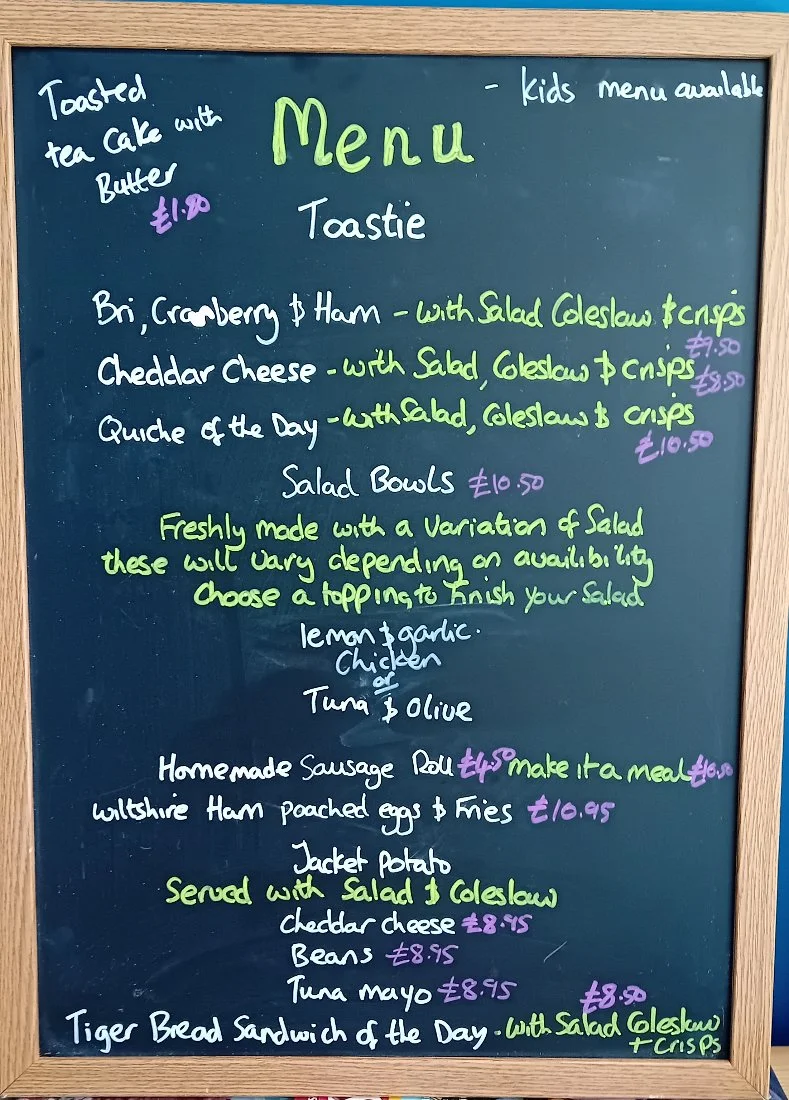 Toasted
tea Cake with
Butter
£1.80
- Kids menu available
Menu
Toastie
Bri, Cranberry & Ham - with Salad Coleslaw & crisps
£9.50
Cheddar Cheese - with Salad, Coleslaw & crisps £8.50
Quiche of the Day - with Salad, Coleslaw & crisps
£10.50
Salad Bowls £10.50
Freshly made with a variation of Salad
these will vary depending on availibility
Choose a topping, to finish your Salad
lemon & garlic.
Chicken
or
Tuna & Olive
Homemade Sausage Roll £4.50 make it a meal £10.50
Wiltshire Ham poached eggs & Fries £10.95
Jacket Potato
Served with Salad & Coleslaw
Cheddar cheese £8.95
Beans £8.95
Tuna mayo £8.95
£8.50
Tiger Bread Sandwich of the Day - with Salad Coleslaw
+ Crisps